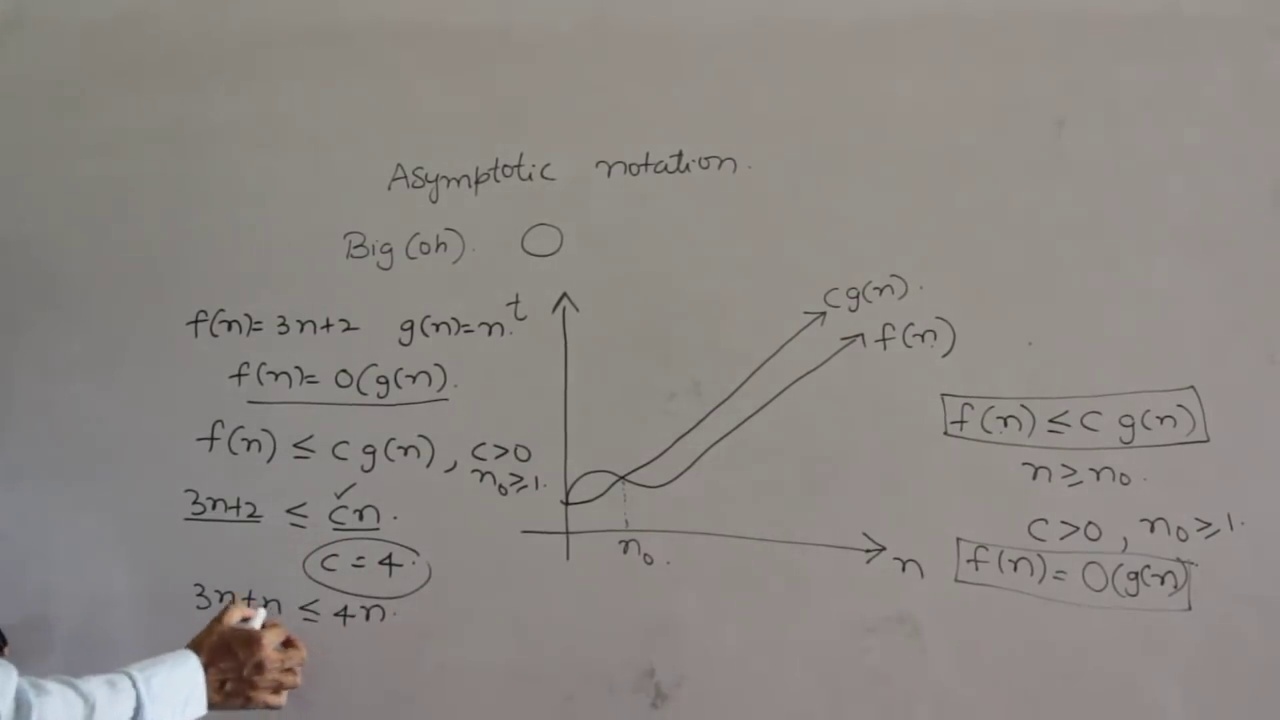 Asymptotic notation.
Big(oh). O
f(n)= 3n+2 g(n)=n.
f(n)= O(g(n).
f(n) ≤ c g(n), c>0
n₀≥1.
3n+2 ≤ cn.
c = 4.
3n+n ≤ 4n.
t
c g(n).
f(n)
n₀.
n
f(n) ≤ c g(n)
n≥n₀.
c>0, n₀≥1.
f(n)= O(g(n)